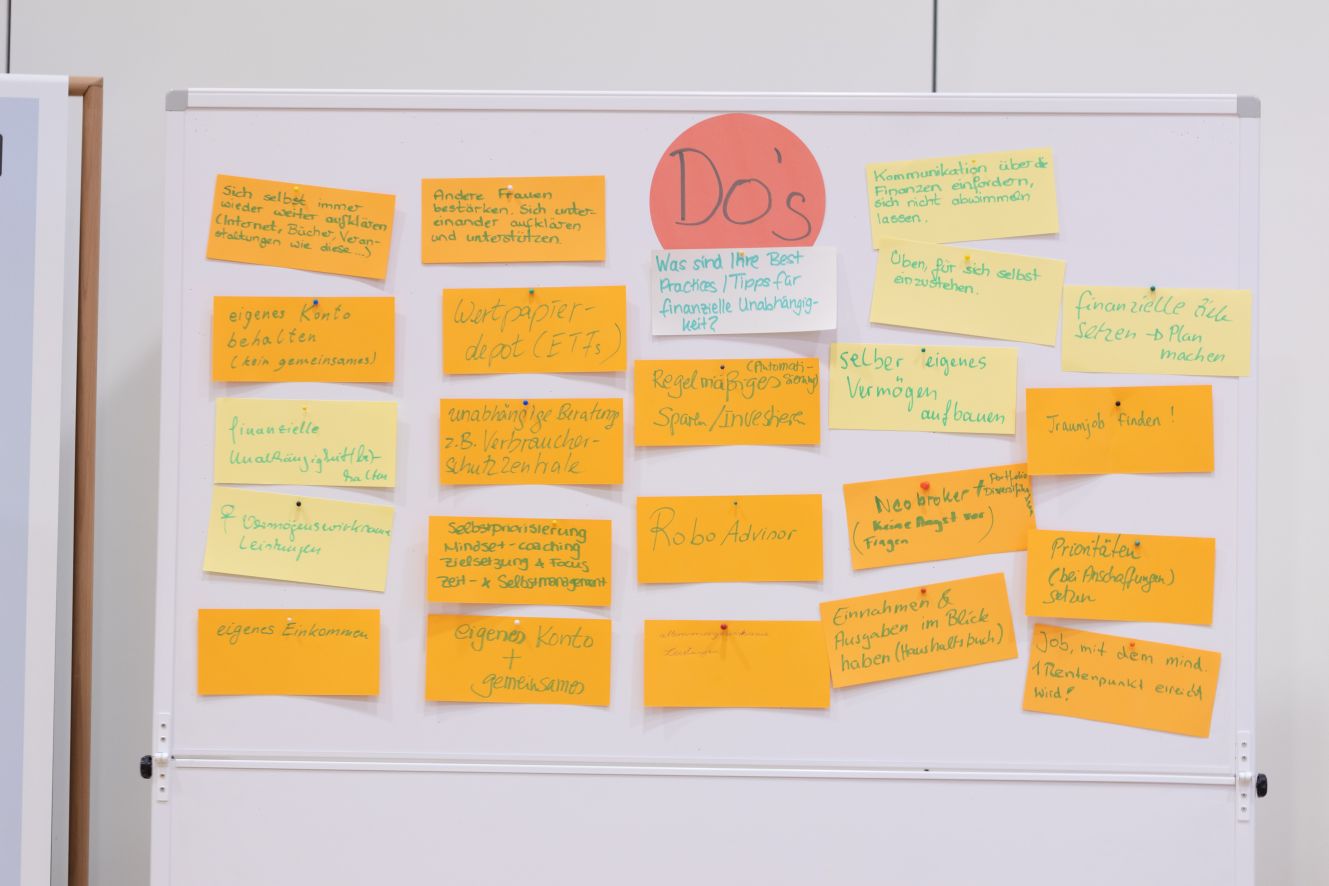 Do's
Was sind Ihre Best
Practices / Tipps für
finanzielle Unabhängig-
keit?
Sich selbst immer
wieder weiter aufklären
(Internet, Bücher, Veran-
staltungen wie diese...)
eigenes Konto
behalten
(kein gemeinsames)
finanzielle
Unabhängigkeit (be)-
halten
Vermögenswirksame
Leistungen
eigenes Einkommen
Andere Frauen
bestärken. Sich unter-
einander aufklären
und unterstützen.
Wertpapier-
depot (ETFs)
unabhängige Beratung
z.B. Verbraucher-
schutzzentrale
Selbstpriorisierung
Mindset-coaching
Zielsetzung & Focus
Zeit- & Selbstmanagement
eigenes Konto
+
gemeinsames
(Automati-
sierung)
Regelmäßiges
Sparen/Investieren
Robo Advisor
Kommunikation über die
Finanzen einfordern,
sich nicht abwimmeln
lassen.
Üben, für sich selbst
einzustehen.
selber eigenes
Vermögen
aufbauen
Neobroker + Portfolio
Diversifik
(Keine Angst vor
Fragen)
Einnahmen &
Ausgaben im Blick
haben (Haushaltsbuch)
finanzielle Ziele
setzen → Plan
machen
Traumjob finden!
Prioritäten
(bei Anschaffungen)
setzen
Job, mit dem mind.
1 Rentenpunkt erreicht
wird!